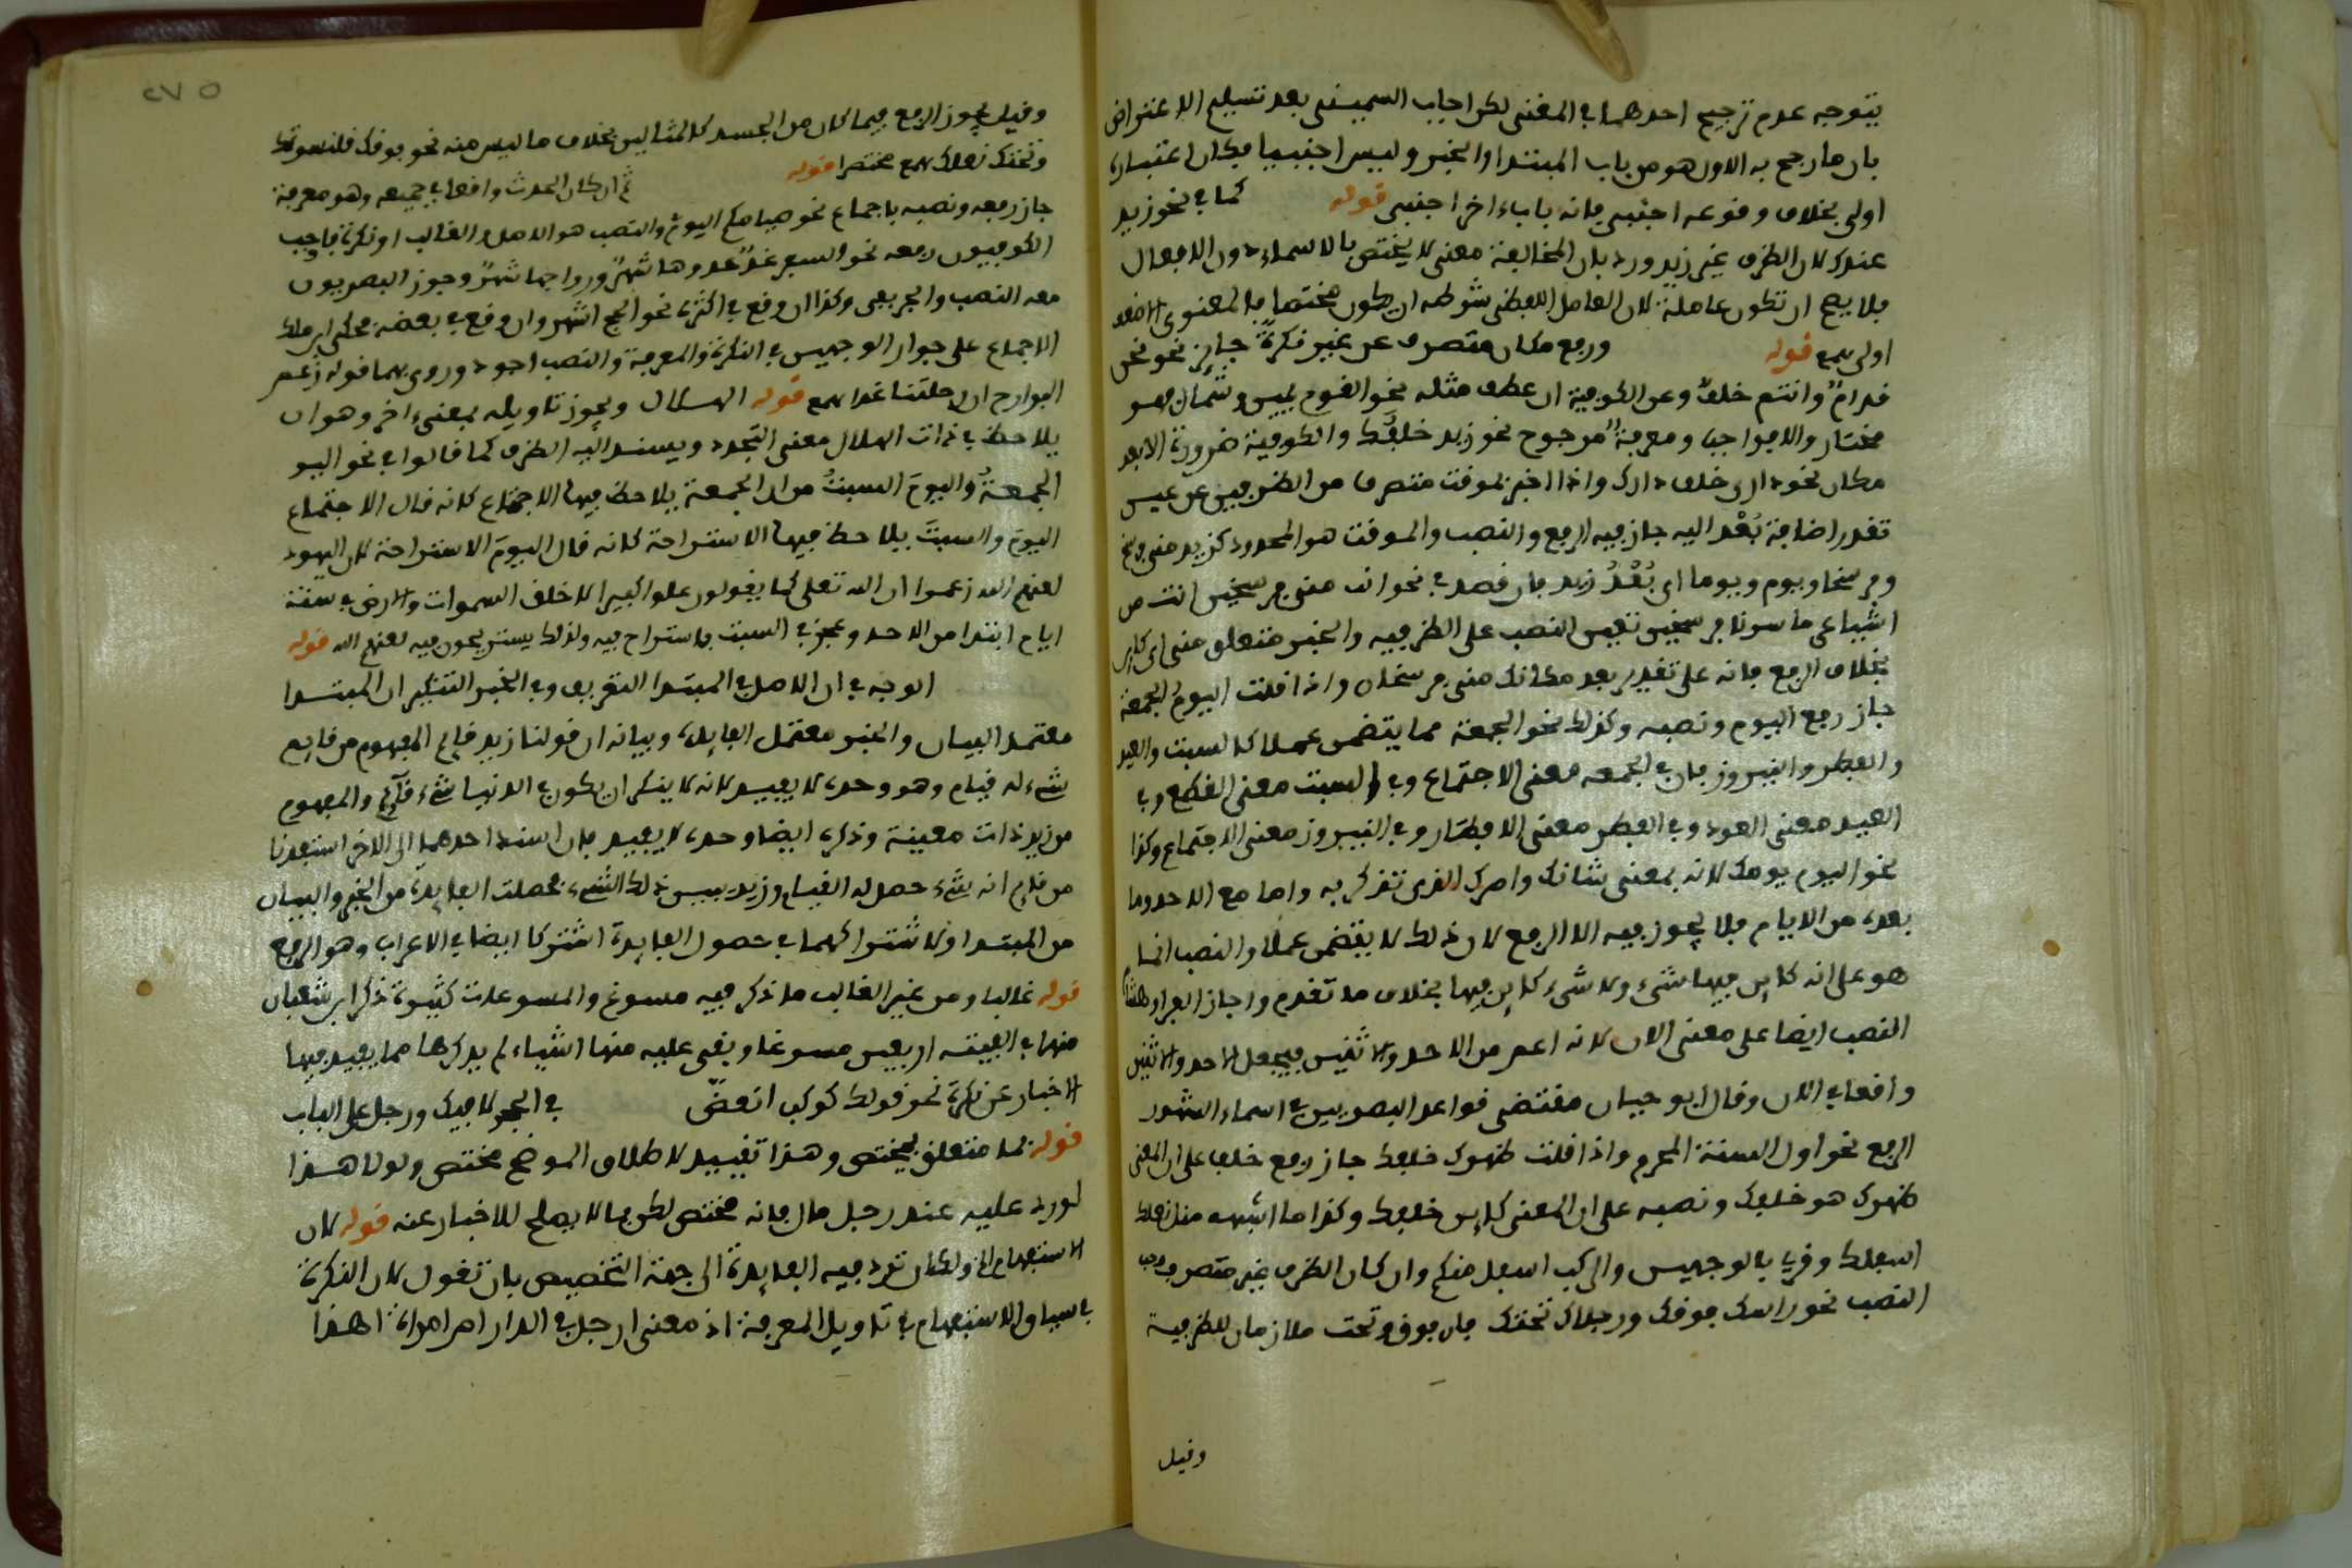 يتوجه عدم ترجيح احدهما في المغنى لكن اجاب السميني بعد تسليم الاعتراض
بان ما رجح به الاول هو من باب المبتدا والخبر وليس اجنبيا فكان اعتباره
اولى بخلاف وقوعه اجنبي فانه باباء اخر اجنبي قوله كما في نحو زيد
عندك لان الظرف غير زيد ورد بان المخالفة معنى لا يختص بالاسماء دون الافعال
فلا يصح ان تكون عاملة لان العامل اللفظي شرطه ان يكون مختصا فالمعنوي الاضعف
اولى سمع قوله ورفع مكان متصرف عن غير نكرةً جايز نحو نحن
قدامٌ وانتم خلفٌ وعن الكوفية ان عطف مثله نحو القوم يمين وشمال فهو
مختار والا فواجب ومعرفةً مرجوح نحو زيد خلفُك والكوفية ضرورة الا بعد
مكان نحو داري خلف دارك واذا اخبر بموقت متصرف من الظرفين عن عين
تقدر اضافة بُعْد اليه جاز فيه الرفع والنصب والموقت هو المحدود كزيد مني فرسخ
وفرسخا ويوم ويوما اي بُعْدُ زيد فان قصد في نحو انت مني فرسخين انت من
اشياعي ما سرنا فرسخين تعين النصب على الظرفيه والخبر متعلق مني اي كاين
بخلاف الرفع فانه على تقدير بعد مكانك مني فرسخان واذا قلت اليومُ الجمعة
جاز رفع اليوم ونصبه وكذلك نحو الجمعة مما يتضمن عملا كالسبت والعيد
والفطر والنيروز فان في الجمعه معنى الاجتماع وفي السبت معنى القطع وفي
العيد معنى العود وفي الفطر معنى الافطار وفي النيروز معنى الاجتماع وكذا
نحو اليوم يومك لانه بمعنى شانك وامرك الذي تذكر به واما مع الاحد وما
بعده من الايام فلا يجوز فيه الا الرفع لان ذلك لا يقتضي عملا والنصب انما
هو على انه كاين فيها شيء ولا شيء كاين فيها بخلاف ما تقدم واجاز الفراء وهشام
النصب ايضا على معنى الان لانه اعم من الاحد والاثنين فيجعل الاحد والاثنين
واقعا في الان وقال ابو حيان مقتضى قواعد البصريين في اسماء الشهور
الرفع نحو اول السنة المحرم واذا قلت ظهرك خلفك جاز رفع خلف على ان المعنى
ظهرك هو خلفك ونصبه على ان المعنى كاين خلفك وكذا ما اشبهه مثل نعلك
اسفلك وقري بالوجهين والركب اسفل منكم وان كان الظرف غير متصرف وجب
النصب نحو راسك فوقك ورجلاك تحتك فان فوق وتحت ملازمان للظرفية
وقيل
٢٧٥
وقيل يجوز الرفع فيما كان من الجسد كالمثالين بخلاف ما ليس منه نحو فوقك قلنسوتك
وتحتك نعلاك سمع مختصرا قوله ثم ان كان الحدث واقعا في جميعه وهو معرفة
جاز رفعه ونصبه باجماع نحو صيامكم اليوم والنصب هو الاصل والغالب او نكرة فاوجب
الكوفيون رفعه نحو السير غدٌ غدوها شهرٌ ورواحها شهرٌ وجوز البصريون
معه النصب والجر بفي وكذا ان وقع في اكثره نحو الحج اشهر وان وقع في بعضه فحكى ابن مالك
الاجماع على جواز الوجهين في النكرة والمعرفة والنصب اجود وروي بهما قوله زعم
البوارح ان رحلتنا غدا سمع قوله الهلال ويجوز تاويله بمعنى اخر وهو ان
يلاحظ في ذات الهلال معنى التجدد ويسند اليه الظرف كما قالوا في نحو اليو
الجمعةُ واليومَ السبتُ من ان الجمعة يلاحظ فيها الاجتماع كانه قال الاجتماع
اليوم والسبتَ يلاحظ فيها الاستراحة كانه قال اليوم الاستراحة لان اليهود
لعنهم الله زعموا ان الله تعلى كما يقولون علوا كبيرا لما خلق السموات والارض في ستة
ايام ابتدا من الاحد وعجز في السبت فاستراح فيه ولذلك يستريحون فيه لعنهم الله قوله
الوجه في ان الاصل في المبتدا التعريف وفي الخبر التنكير ان المبتدا
معتمد البيان والخبر معتمد الفايدة وبيانه ان قولنا زيد قايم المفهوم من قايم
شيء له قيام وهو وحده لا يفيد لانه لا ينكر ان يكون في الدنيا شيء قايم والمفهوم
من زيد ذات معينة وذكره ايضا وحده لا يفيد فان اسند احدهما الى الاخر استفدنا
من قايم انه شيء حصل له القيام وزيد يبين ذلك الشيء فحصلت الفايدة من الخبر والبيان
من المبتدا ولاشتراكهما في حصول الفايدة اشتركا ايضا في الاعراب وهو الرفع
قوله غالبا ومن غير الغالب ما ذكر فيه مسوغ والمسوغات كثيرة ذكر ابن شعبان
منها في الفيته اربعين مسوغا وبقي عليه منها اشياء لم يذكرها مما يفيد فيها
الاخبار عن نكرة نحو قولك كوكب انقضّ في الجو لا فيك ورجل على الباب
قوله بما متعلق بيختص وهذا تقييد لاطلاق الموضح مختص ولولا هذا
لورد عليه عند رجل مال فانه مختص لكن بما لا يصلح للاخبار عنه قوله لان
الاستفهام الخ ولك ان ترد فيه الفايدة الى جهة التخصيص بان تقول لان النكرة
في سياق الاستفهام في تاويل المعرفة اذ معنى ارجل في الدار ام امراة اهذا